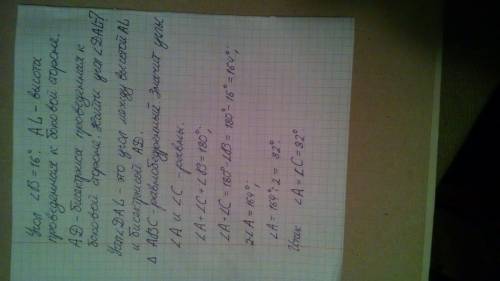 Угол ∠B=16° AL - высота
проведенная к боковой стороне.
AD - биссектриса проведенная к
боковой стороне, найти угол ∠DAL?
Угол∠DAL - это угол между высотой AL
и биссектрисой AD.
△ ABC - равнобедренный значит углы
∠A и ∠C - равны.
∠A+∠C+∠B=180°;
∠A+∠C=180°-∠B=180°-16°=164°;
2∠A=164°;
∠A=164°:2= 82°
Итак ∠A=∠C=82°